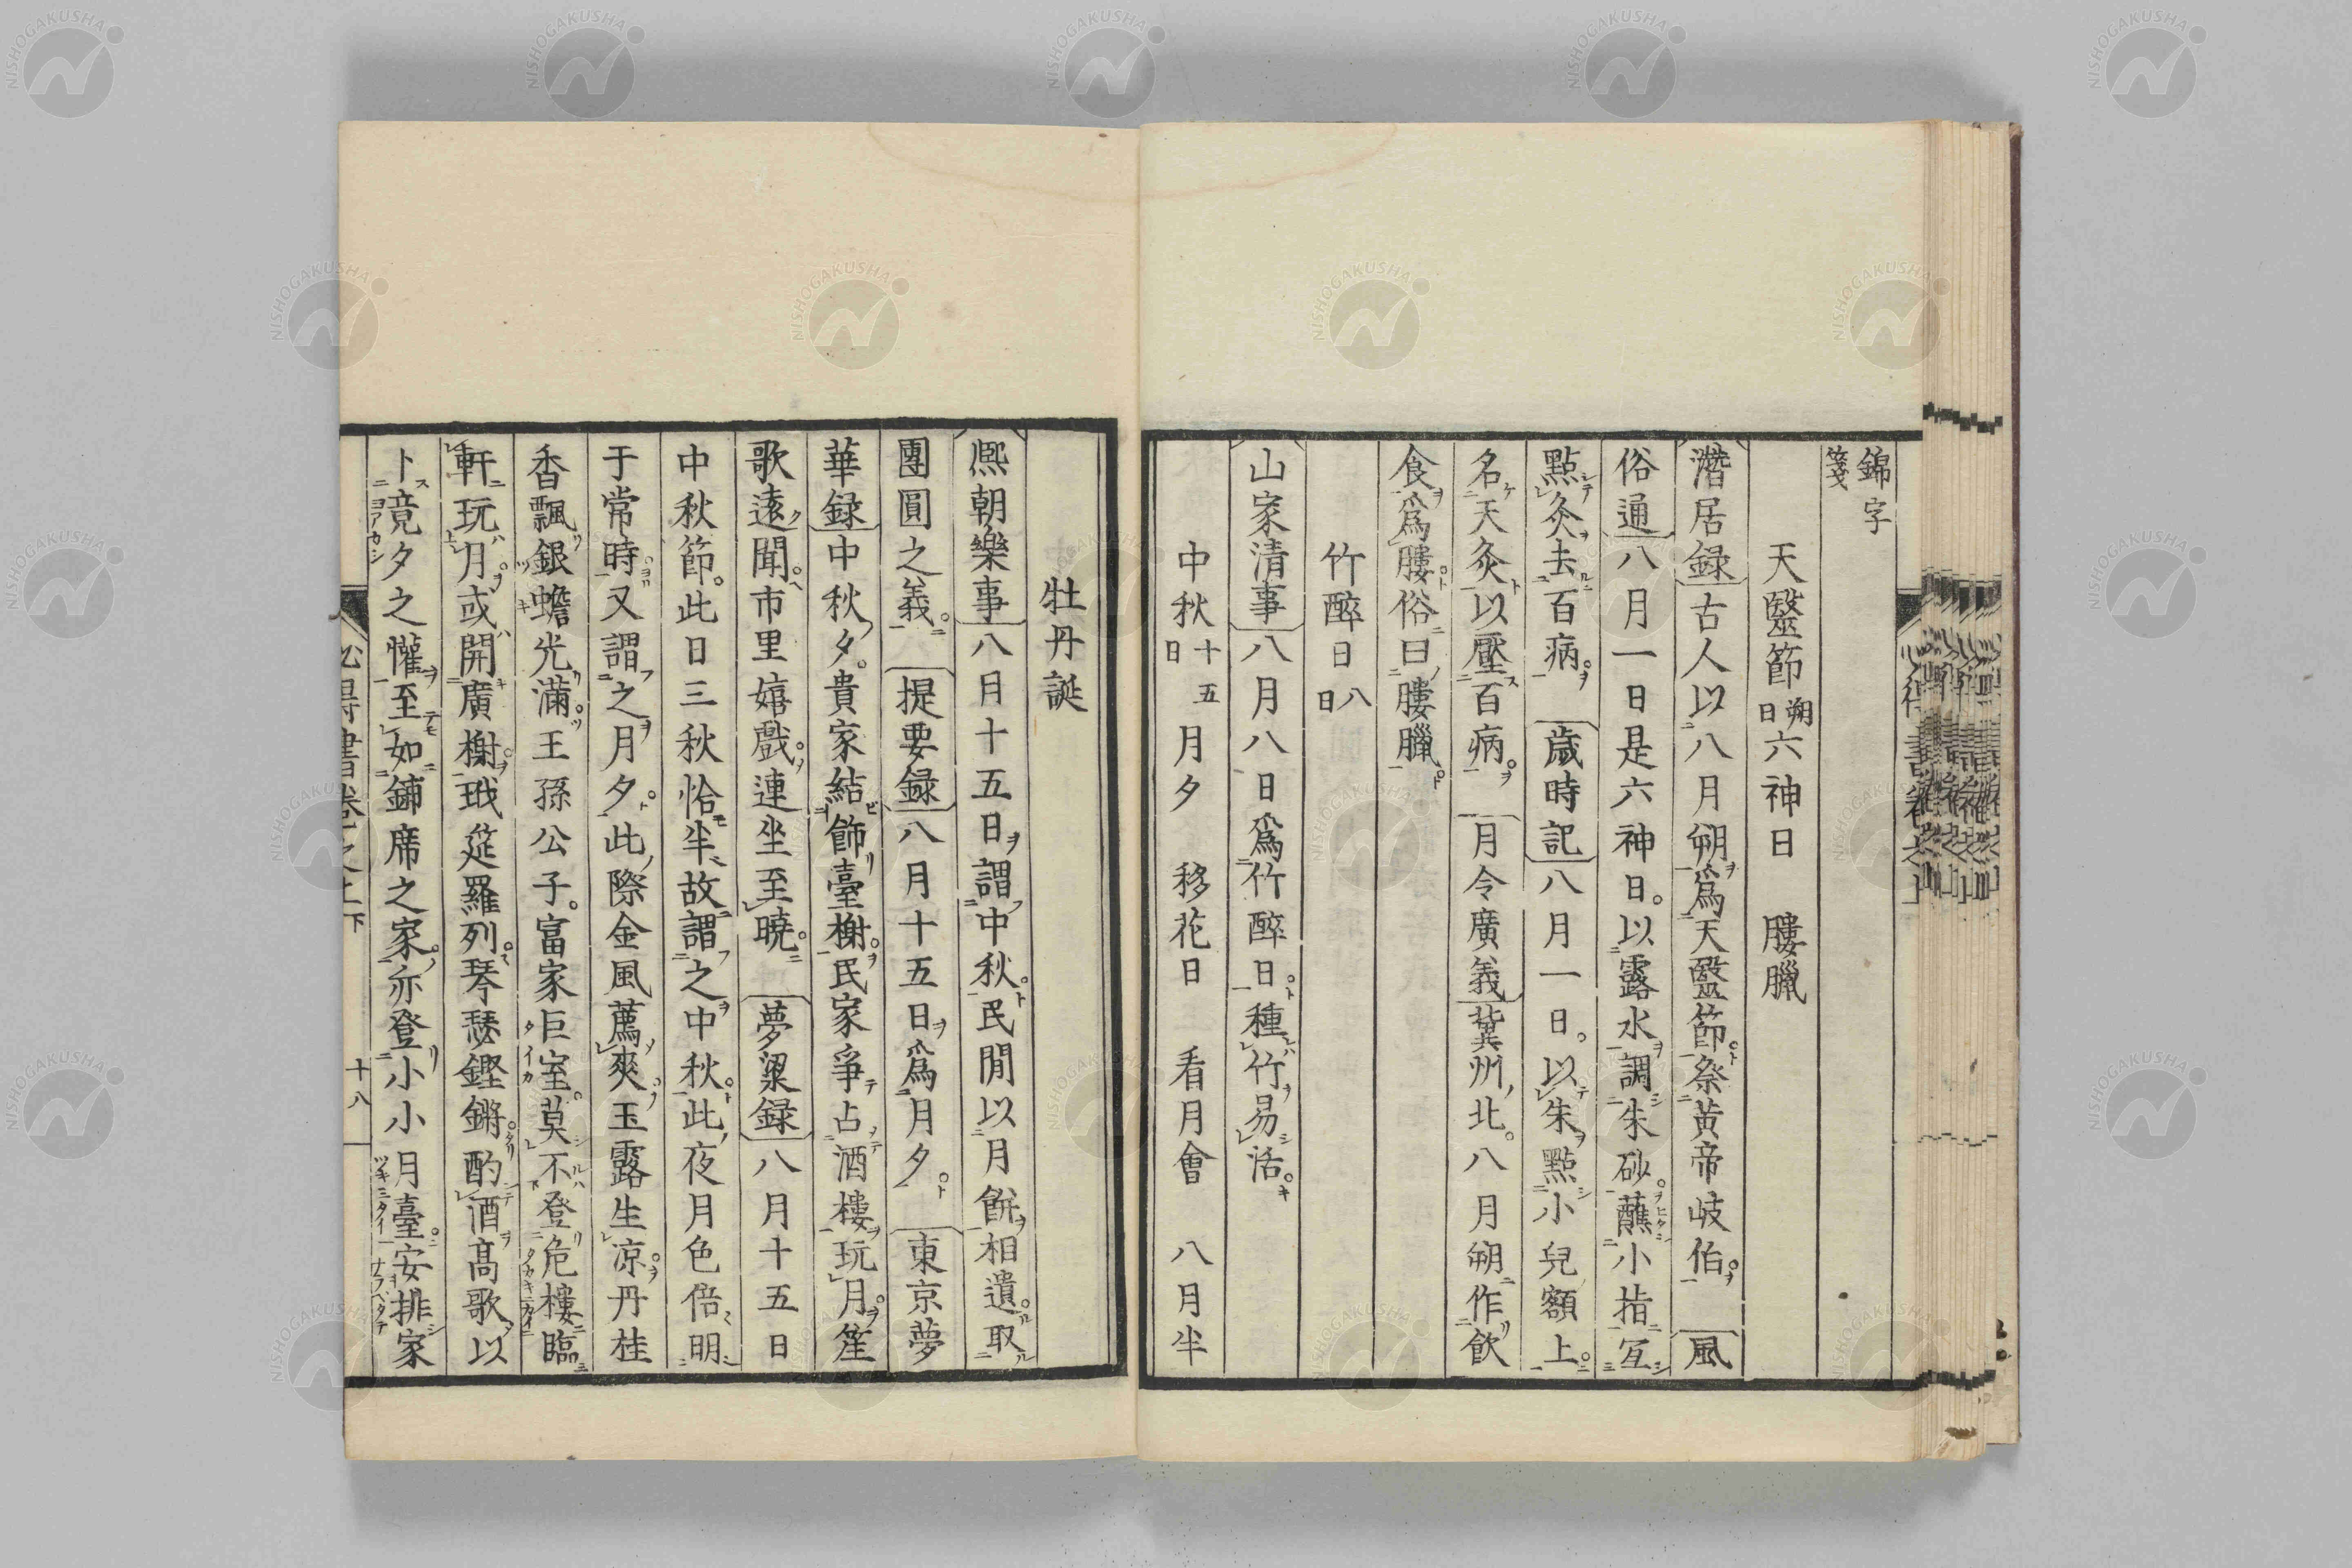 錦字
箋
天毉節朔日六神日　膢臘
潛居録古人以八月朔爲天毉節祭黄帝岐伯風
俗通八月一日是六神日以露水調朱砂蘸小指宐
點灸去百病歳時記八月一日以朱點小兒額上
名天灸以壓百病月令廣義冀州北八月朔作飲
食爲膢俗曰膢臘
竹醉日八日
山家清事八月八日爲竹醉日種竹易活
中秋十五日月夕　移花日　看月會　八月半
牡丹誕
熈朝樂事八月十五日謂中秋民間以月餅相遺取
團圓之義提要録八月十五日爲月夕東京夢
華録中秋夕貴家結飾臺榭民家爭占酒樓玩月笙
歌遠聞市里嬉戲連坐至曉夢粱録八月十五日
中秋節此日三秋恰半故謂之中秋此夜月色倍明
于常時又謂之月夕此際金風薦爽玉露生凉丹桂
香飄銀蟾光滿王孫公子富家巨室莫不登危樓臨
軒玩月或開廣榭玳筵羅列琴瑟鏗鏘酌酒髙歌以
卜竟夕之懽至如鋪席之家亦登小小月臺安排家
十八
NISHOGAKUSHA